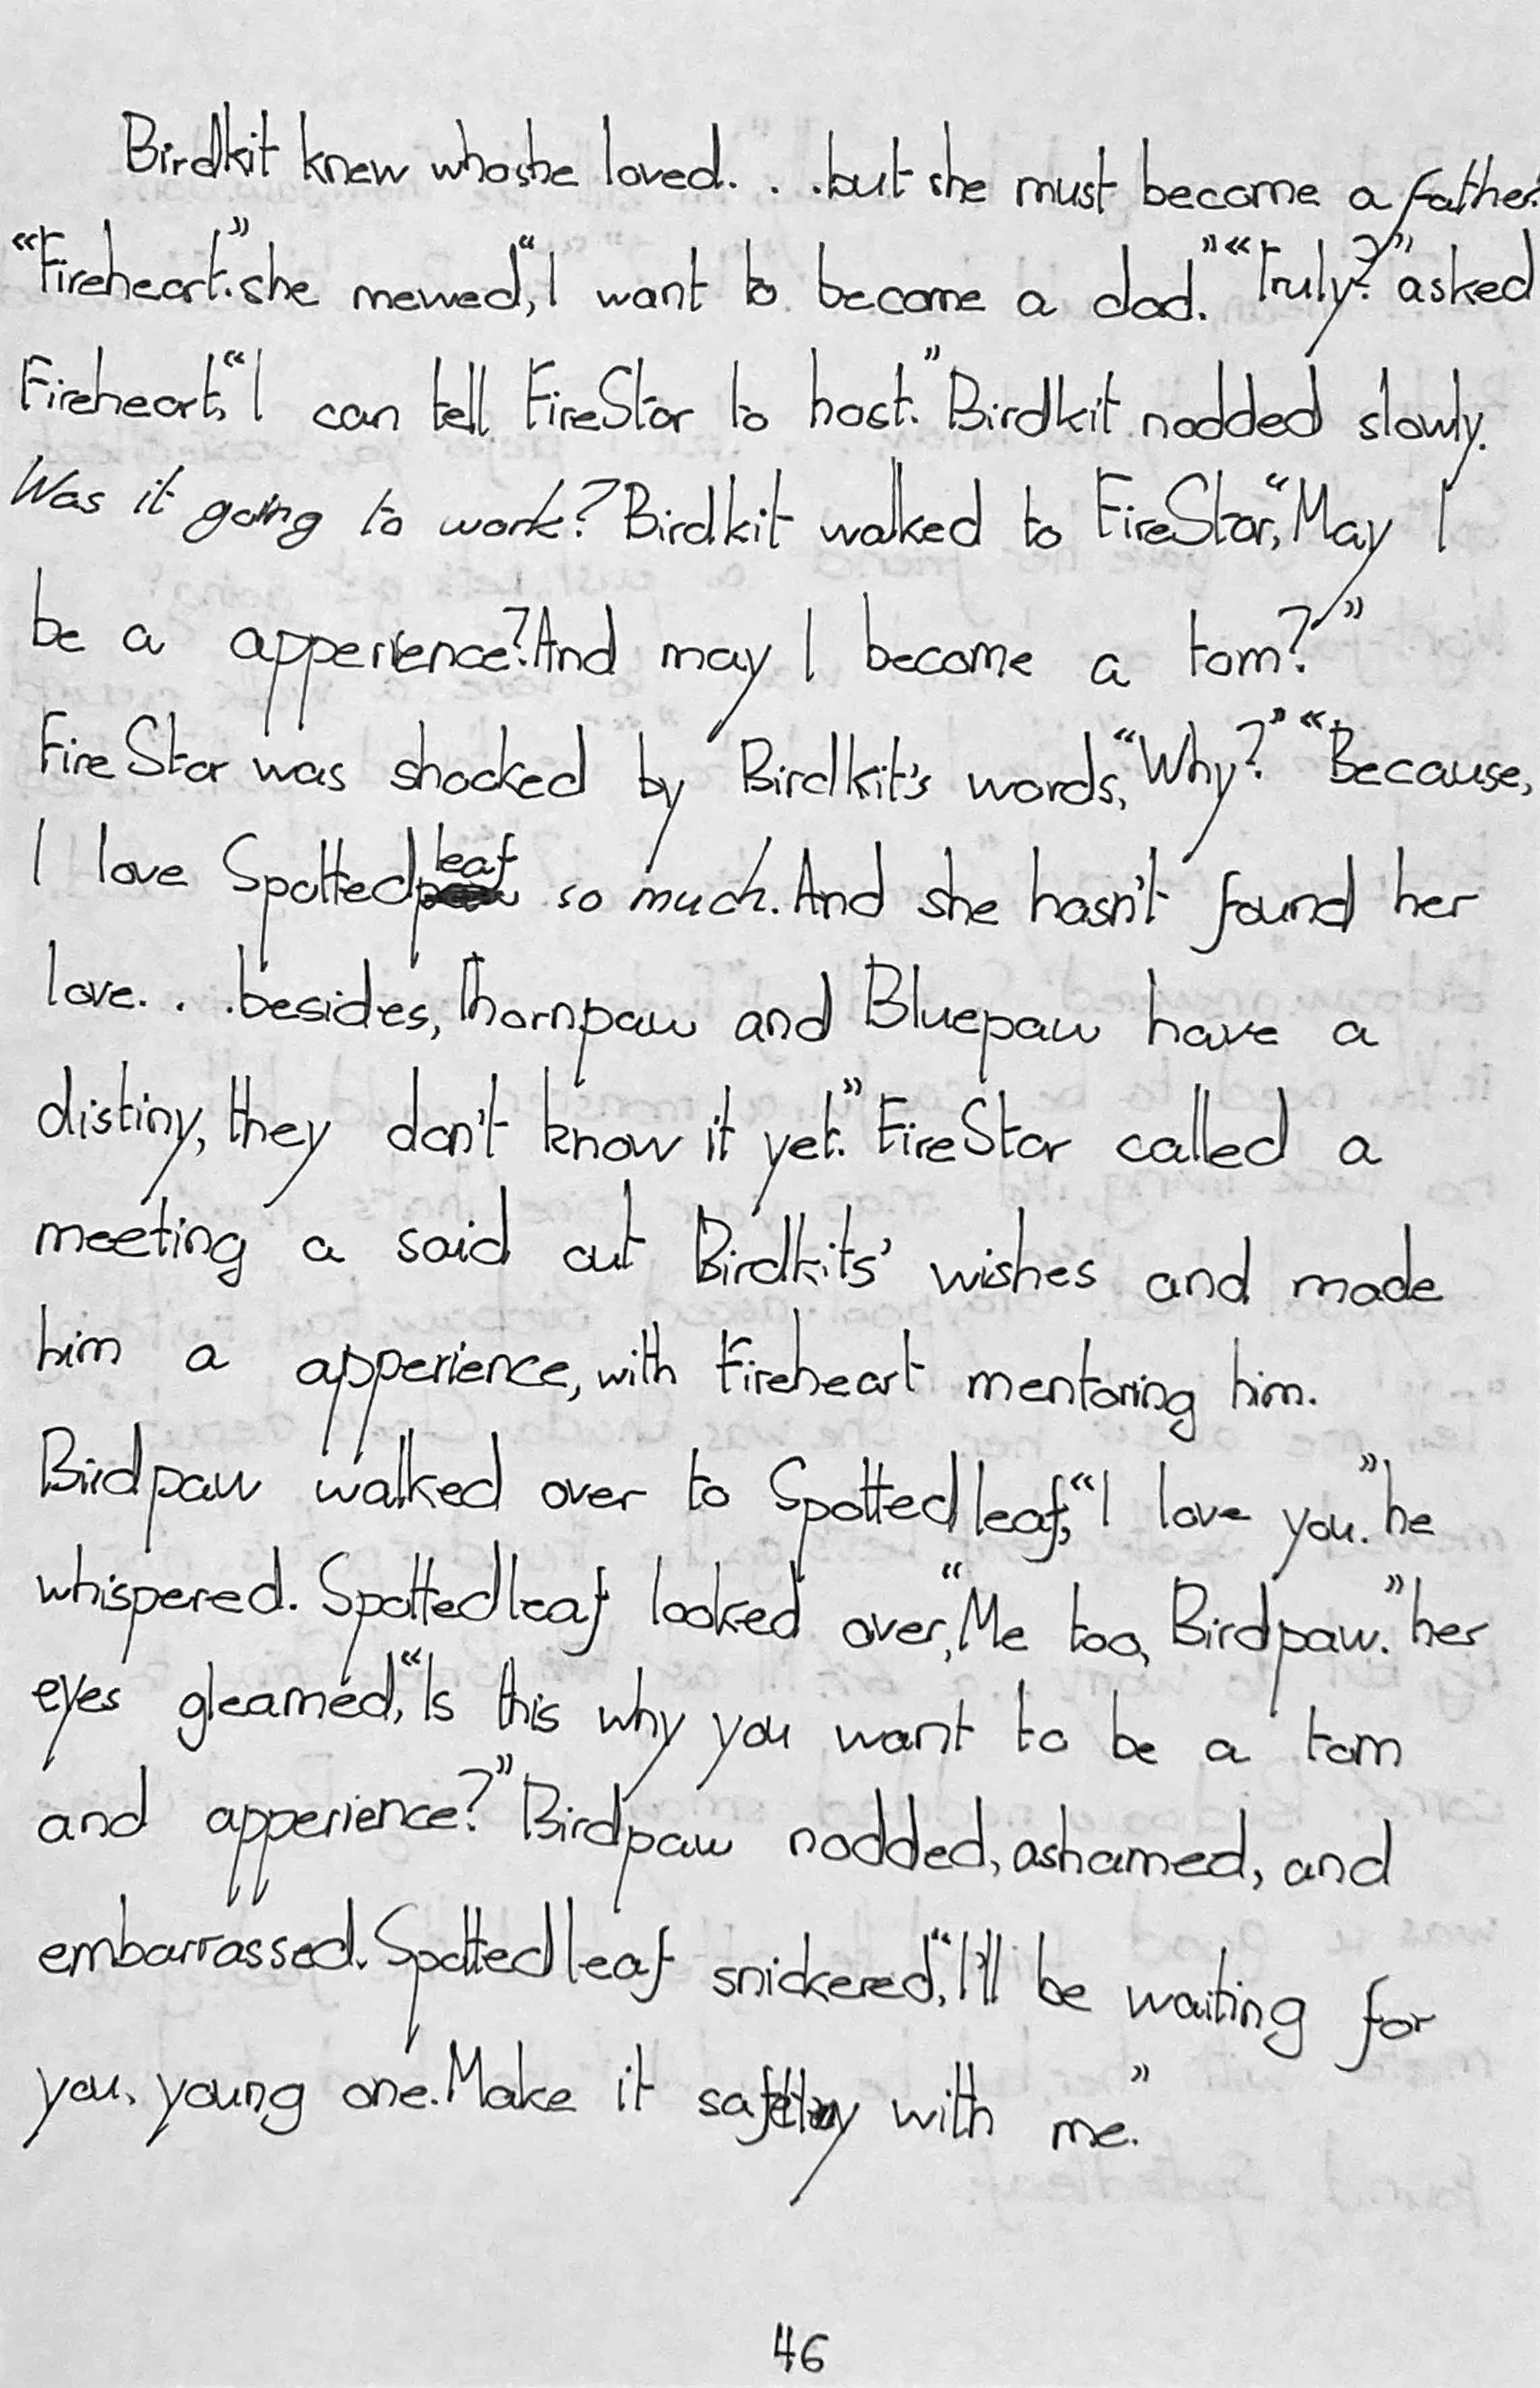 Birdkit knew whoshe loved. . .but she must become a father.
“Fireheart.” she mewed, “I want to become a dad.” “Truly?” asked
Fireheart, “I can tell FireStar to host.” Birdkit nodded slowly.
Was it going to work? Birdkit walked to FireStar, “May I
be a apperience? And may I become a tom?”
FireStar was shocked by Birdkit's words, “Why?” “Because,
I love Spottedleaf so much. And she hasn't found her
love. . .besides, Thornpaw and Bluepaw have a
distiny, they don't know it yet.” FireStar called a
meeting a said out Birdkits' wishes and made
him a apperience, with Fireheart mentoring him.
Birdpaw walked over to Spottedleaf, “I love you.” he
whispered. Spottedleaf looked over, “Me too, Birdpaw.” her
eyes gleamed, “Is this why you want to be a tom
and apperience?” Birdpaw nodded, ashamed, and
embarrassed. Spottedleaf snickered, “I'll be waiting for
you, young one. Make it with me.”
46